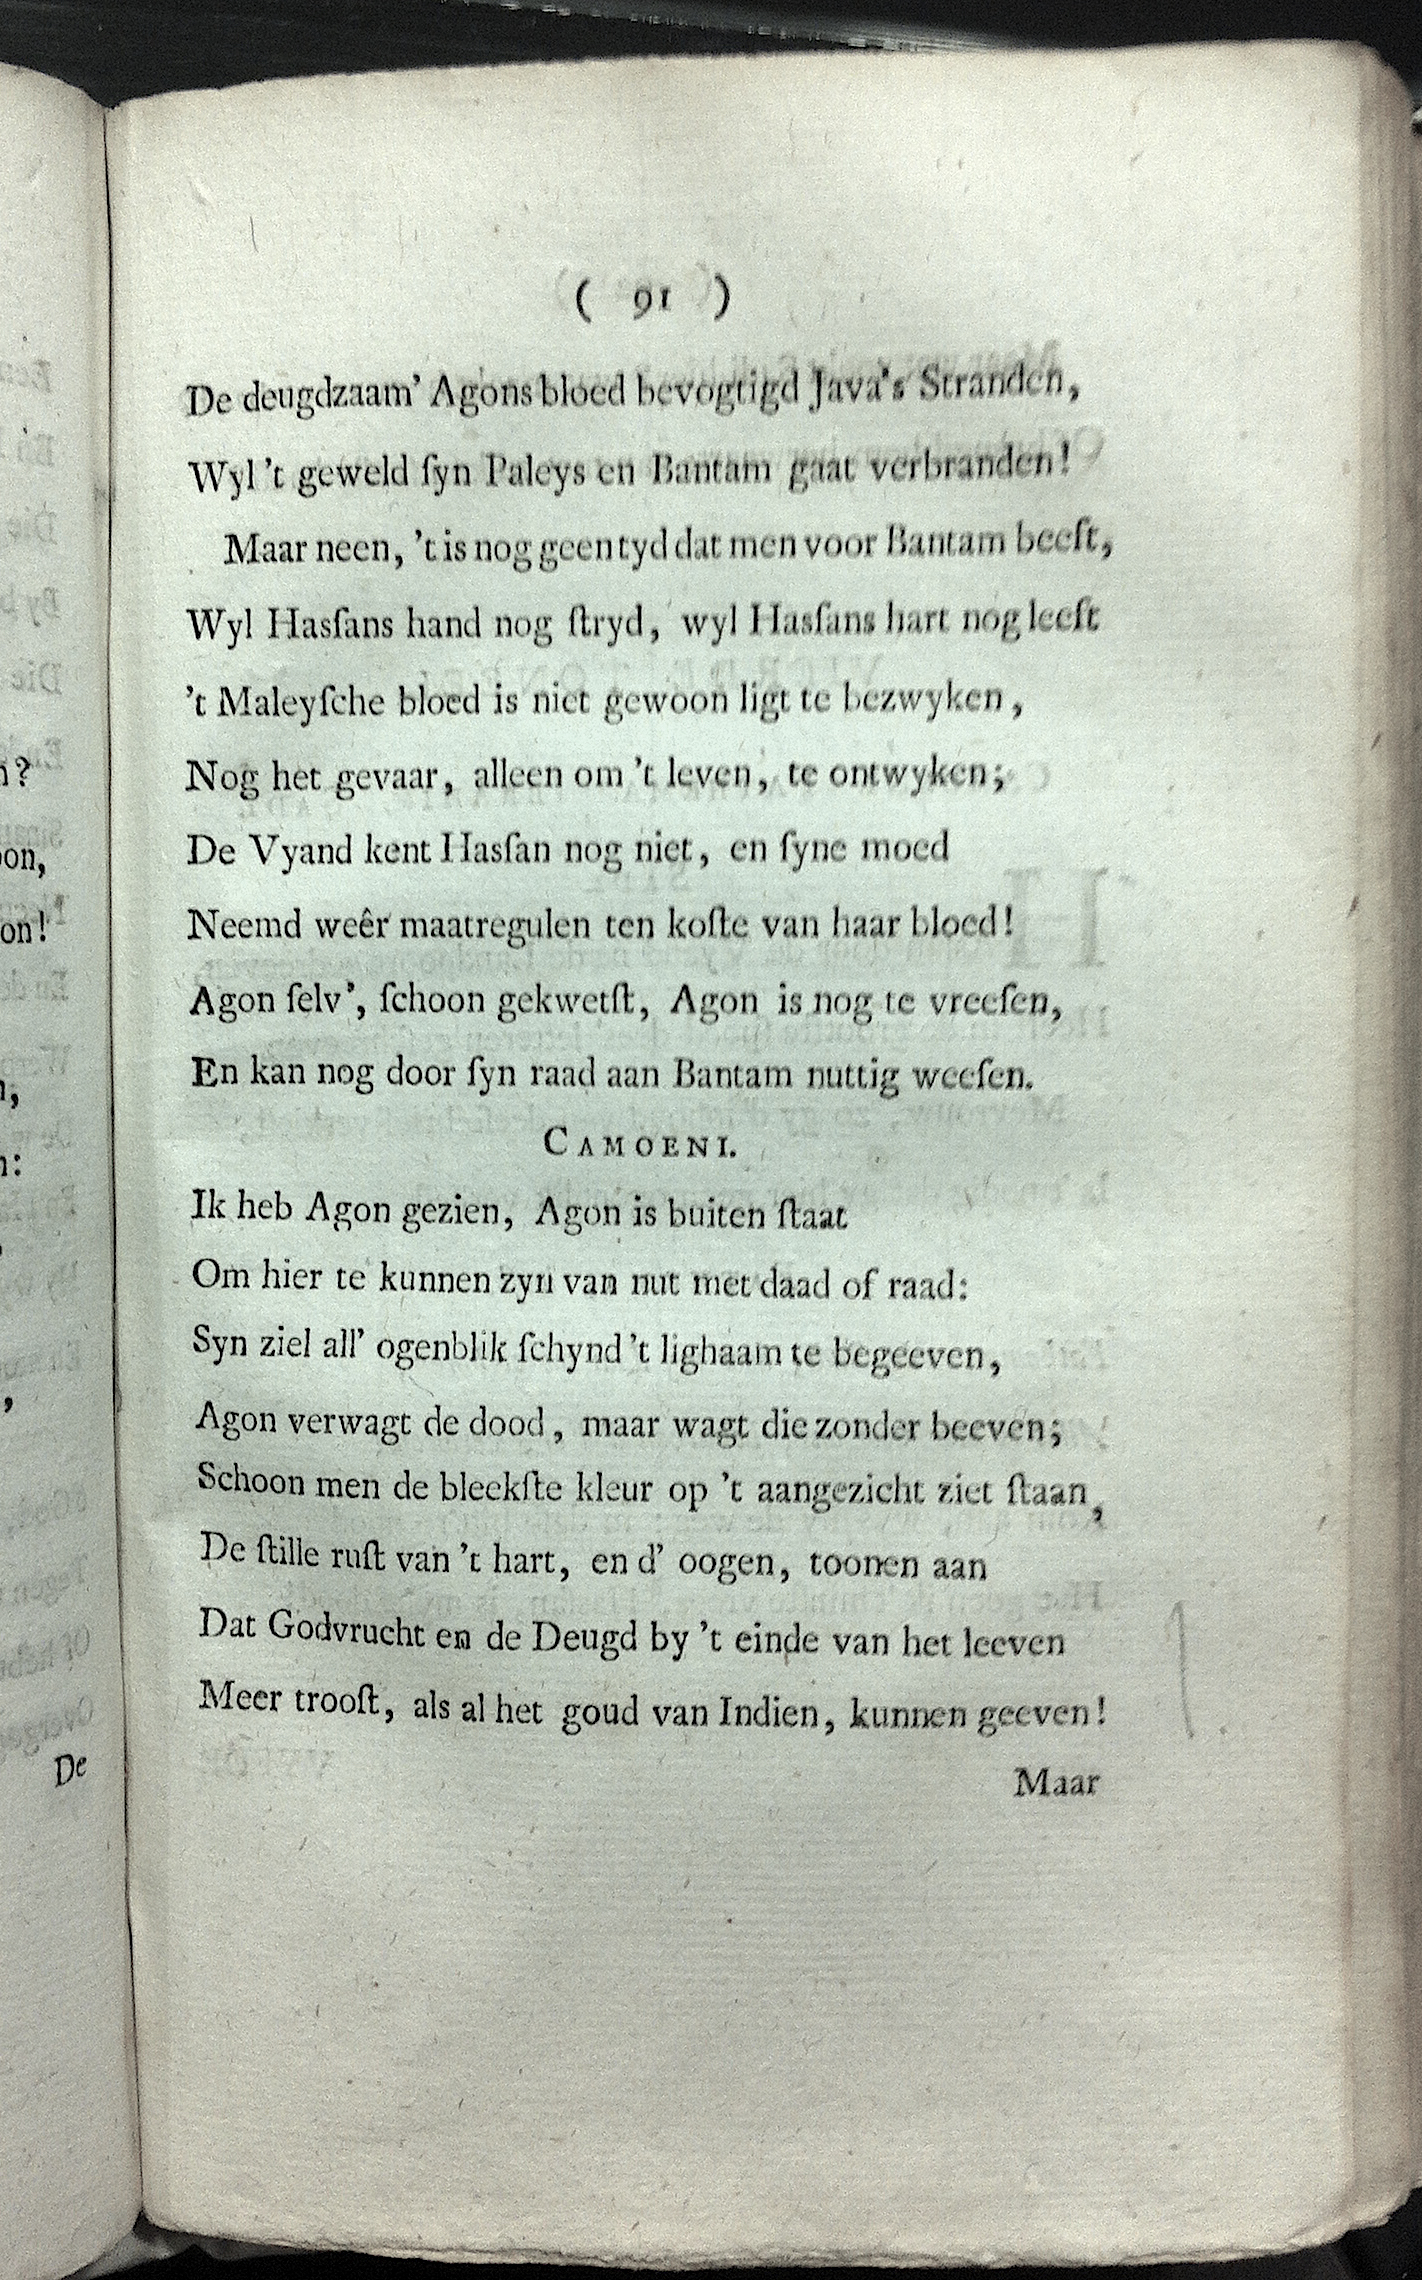 n?
on,
on!
n,
n:
,
De
( 91 )
De deugdzaam' Agons bloed bevogtigd Java's Stranden,
Wyl 't geweld ſyn Paleys en Bantam gaat verbranden!
Maar neen, 't is nog geen tyd dat men voor Bantam beeft,
Wyl Hasſans hand nog ſtryd, wyl Hasſans hart nog leeft
't Maleyſche bloed is niet gewoon ligt te bezwyken,
Nog het gevaar, alleen om 't leven, te ontwyken;
De Vyand kent Hasſan nog niet, en ſyne moed
Neemd weêr maatregulen ten koſte van haar bloed!
Agon ſelv', ſchoon gekwetſt, Agon is nog te vreeſen,
En kan nog door ſyn raad aan Bantam nuttig weeſen.
CAMOENI.
Ik heb Agon gezien, Agon is buiten ſtaat
Om hier te kunnen zyn van nut met daad of raad:
Syn ziel all' ogenblik ſchynd 't lighaam te begeeven,
Agon verwagt de dood, maar wagt die zonder beeven;
Schoon men de bleekſte kleur op 't aangezicht ziet ſtaan,
De ſtille ruſt van 't hart, en d' oogen, toonen aan
Dat Godvrucht en de Deugd by 't einde van het leeven
Meer trooſt, als al het goud van Indien, kunnen geeven!
Maar